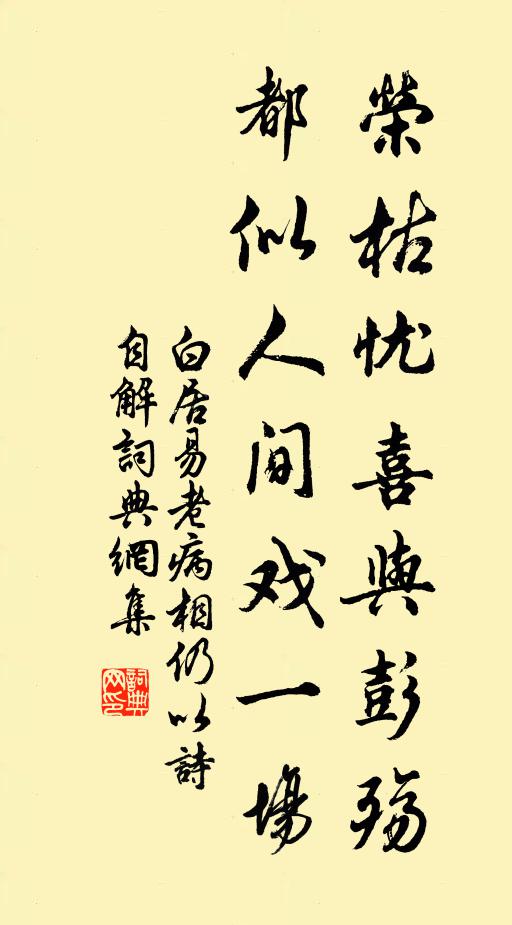 榮枯忧喜與彭殤
都似人间戏一場
白居易老病相仍以詩
自解詞典網集
詞典
网印